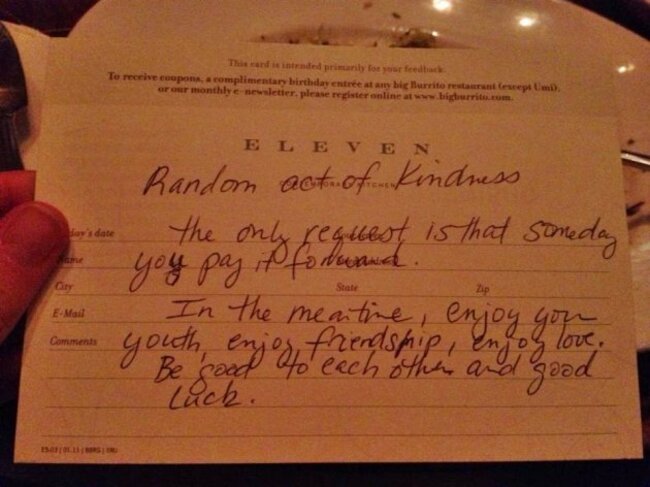 This card is intended primarily for your feedback.
To receive coupons, a complimentary birthday entrée at any big Burrito restaurant (except Umi),
or our monthly e-newsletter, please register online at www.bigburrito.com.
ELEVEN
Random act of Kindness
day's date
the only request is that someday
Name
you pay it forward.
City State Zip
E-Mail
In the meantime, enjoy your
Comments
youth, enjoy friendship, enjoy love.
Be good to each other and good
Luck.